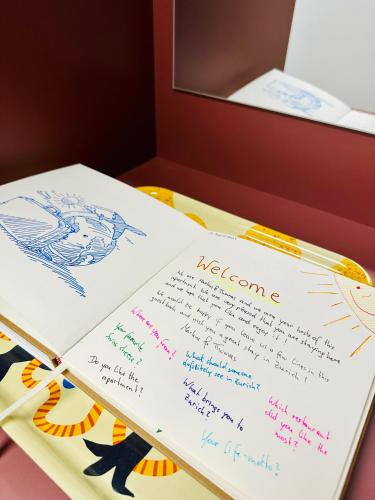 Welcome
We are Markus & Thomas and we are your hosts of this
apartment. We are very pleased that you are staying here
and we hope that you like and enjoy it!
We would be happy if you leave us a few lines in this
guest book and wish you a great stay in Zurich!
Markus & Thomas
Where are you from?
Your favourite
Swiss cheese?
Do you like the
apartment?
What should someone
definitely see in Zurich?
What brings you to
Zurich?
Which restaurant
did you like the
most?
Your life-motto?